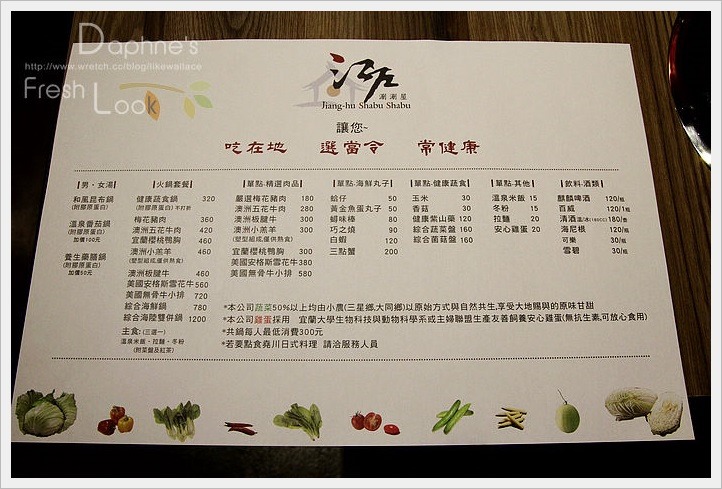 Daphne's
http://www.wretch.cc/blog/likewallace
Fresh Look
涮涮屋
Jiang-hu Shabu Shabu
讓您~
吃在地 選當令 常健康
男・女湯
和風昆布鍋
(附膠原蛋白)
溫泉番茄鍋
(附膠原蛋白)
加價100元
養生藥膳鍋
(附膠原蛋白)
加價50元
火鍋套餐
健康蔬食鍋 320
(附膠原蛋白)不打折
梅花豬肉 360
澳洲五花牛肉 420
宜蘭櫻桃鴨胸 460
澳洲小羔羊 460
(塑型組成,僅供熟食)
澳洲板腱牛 460
美國安格斯雪花牛 560
美國無骨牛小排 720
綜合海鮮鍋 780
綜合海陸雙併鍋 1200
主食:(三選一)
溫泉米飯・拉麵・冬粉
(附菜盤及紅茶)
單點・精選肉品
嚴選梅花豬肉 180
澳洲五花牛肉 280
澳洲板腱牛 300
澳洲小羔羊 300
(塑型組成,僅供熟食)
宜蘭櫻桃鴨胸 300
美國安格斯雪花牛 380
美國無骨牛小排 580
單點・海鮮丸子
蛤仔 50
黃金魚蛋丸子 50
蝴味棒 80
巧之燒 90
白蝦 120
三點蟹 200
單點・健康蔬食
玉米 30
香菇 30
健康紫山藥 120
綜合蔬菜盤 160
綜合菌菇盤 160
單點・其他
溫泉米飯 15
冬粉 15
拉麵 20
安心雞蛋 20
飲料・酒類
麒麟啤酒 120/瓶
百威 120/1瓶
清酒 溫/冰(180CC) 180/壺
海尼根 120/瓶
可樂 30/瓶
雪碧 30/瓶
*本公司蔬菜50%以上均由小農(三星鄉,大同鄉)以原始方式與自然共生,享受大地賜與的原味甘甜
*本公司雞蛋採用 宜蘭大學生物科技與動物科學系或主婦聯盟生產友善飼養安心雞蛋(無抗生素,可放心食用)
*共鍋每人最低消費300元
*若要點食堯川日式料理 請洽服務人員